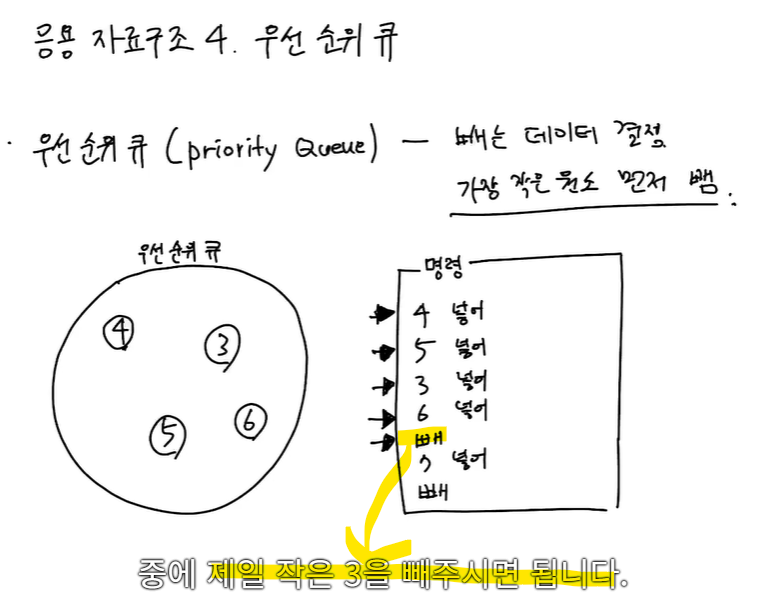 응용 자료구조 4. 우선 순위 큐
· 우선순위 큐 (priority Queue) — 빼는 데이터 결정
가장 작은 원소 먼저 뺌.
우선순위 큐
4
3
5
6
명령
4 넣어
5 넣어
3 넣어
6 넣어
빼
넣어
빼
중에 제일 작은 3을 빼주시면 됩니다.